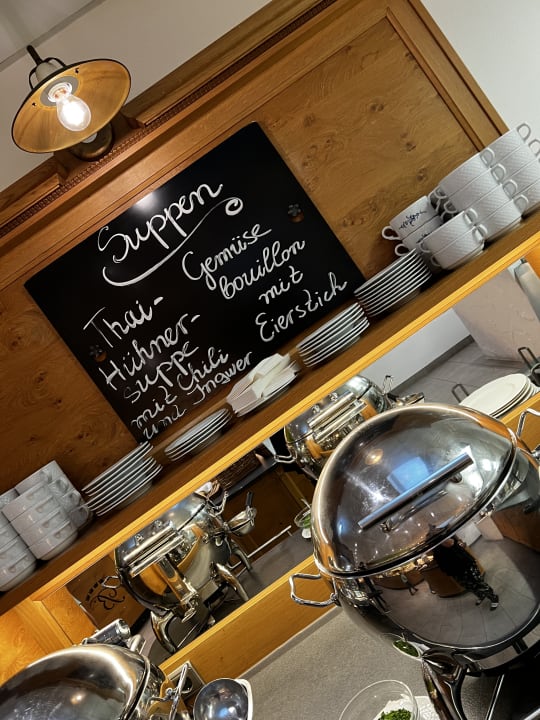 Suppen
Thai-
Hühner-
suppe
mit Chili
und Ingwer
Gemüse
bouillon
mit
Eierstich